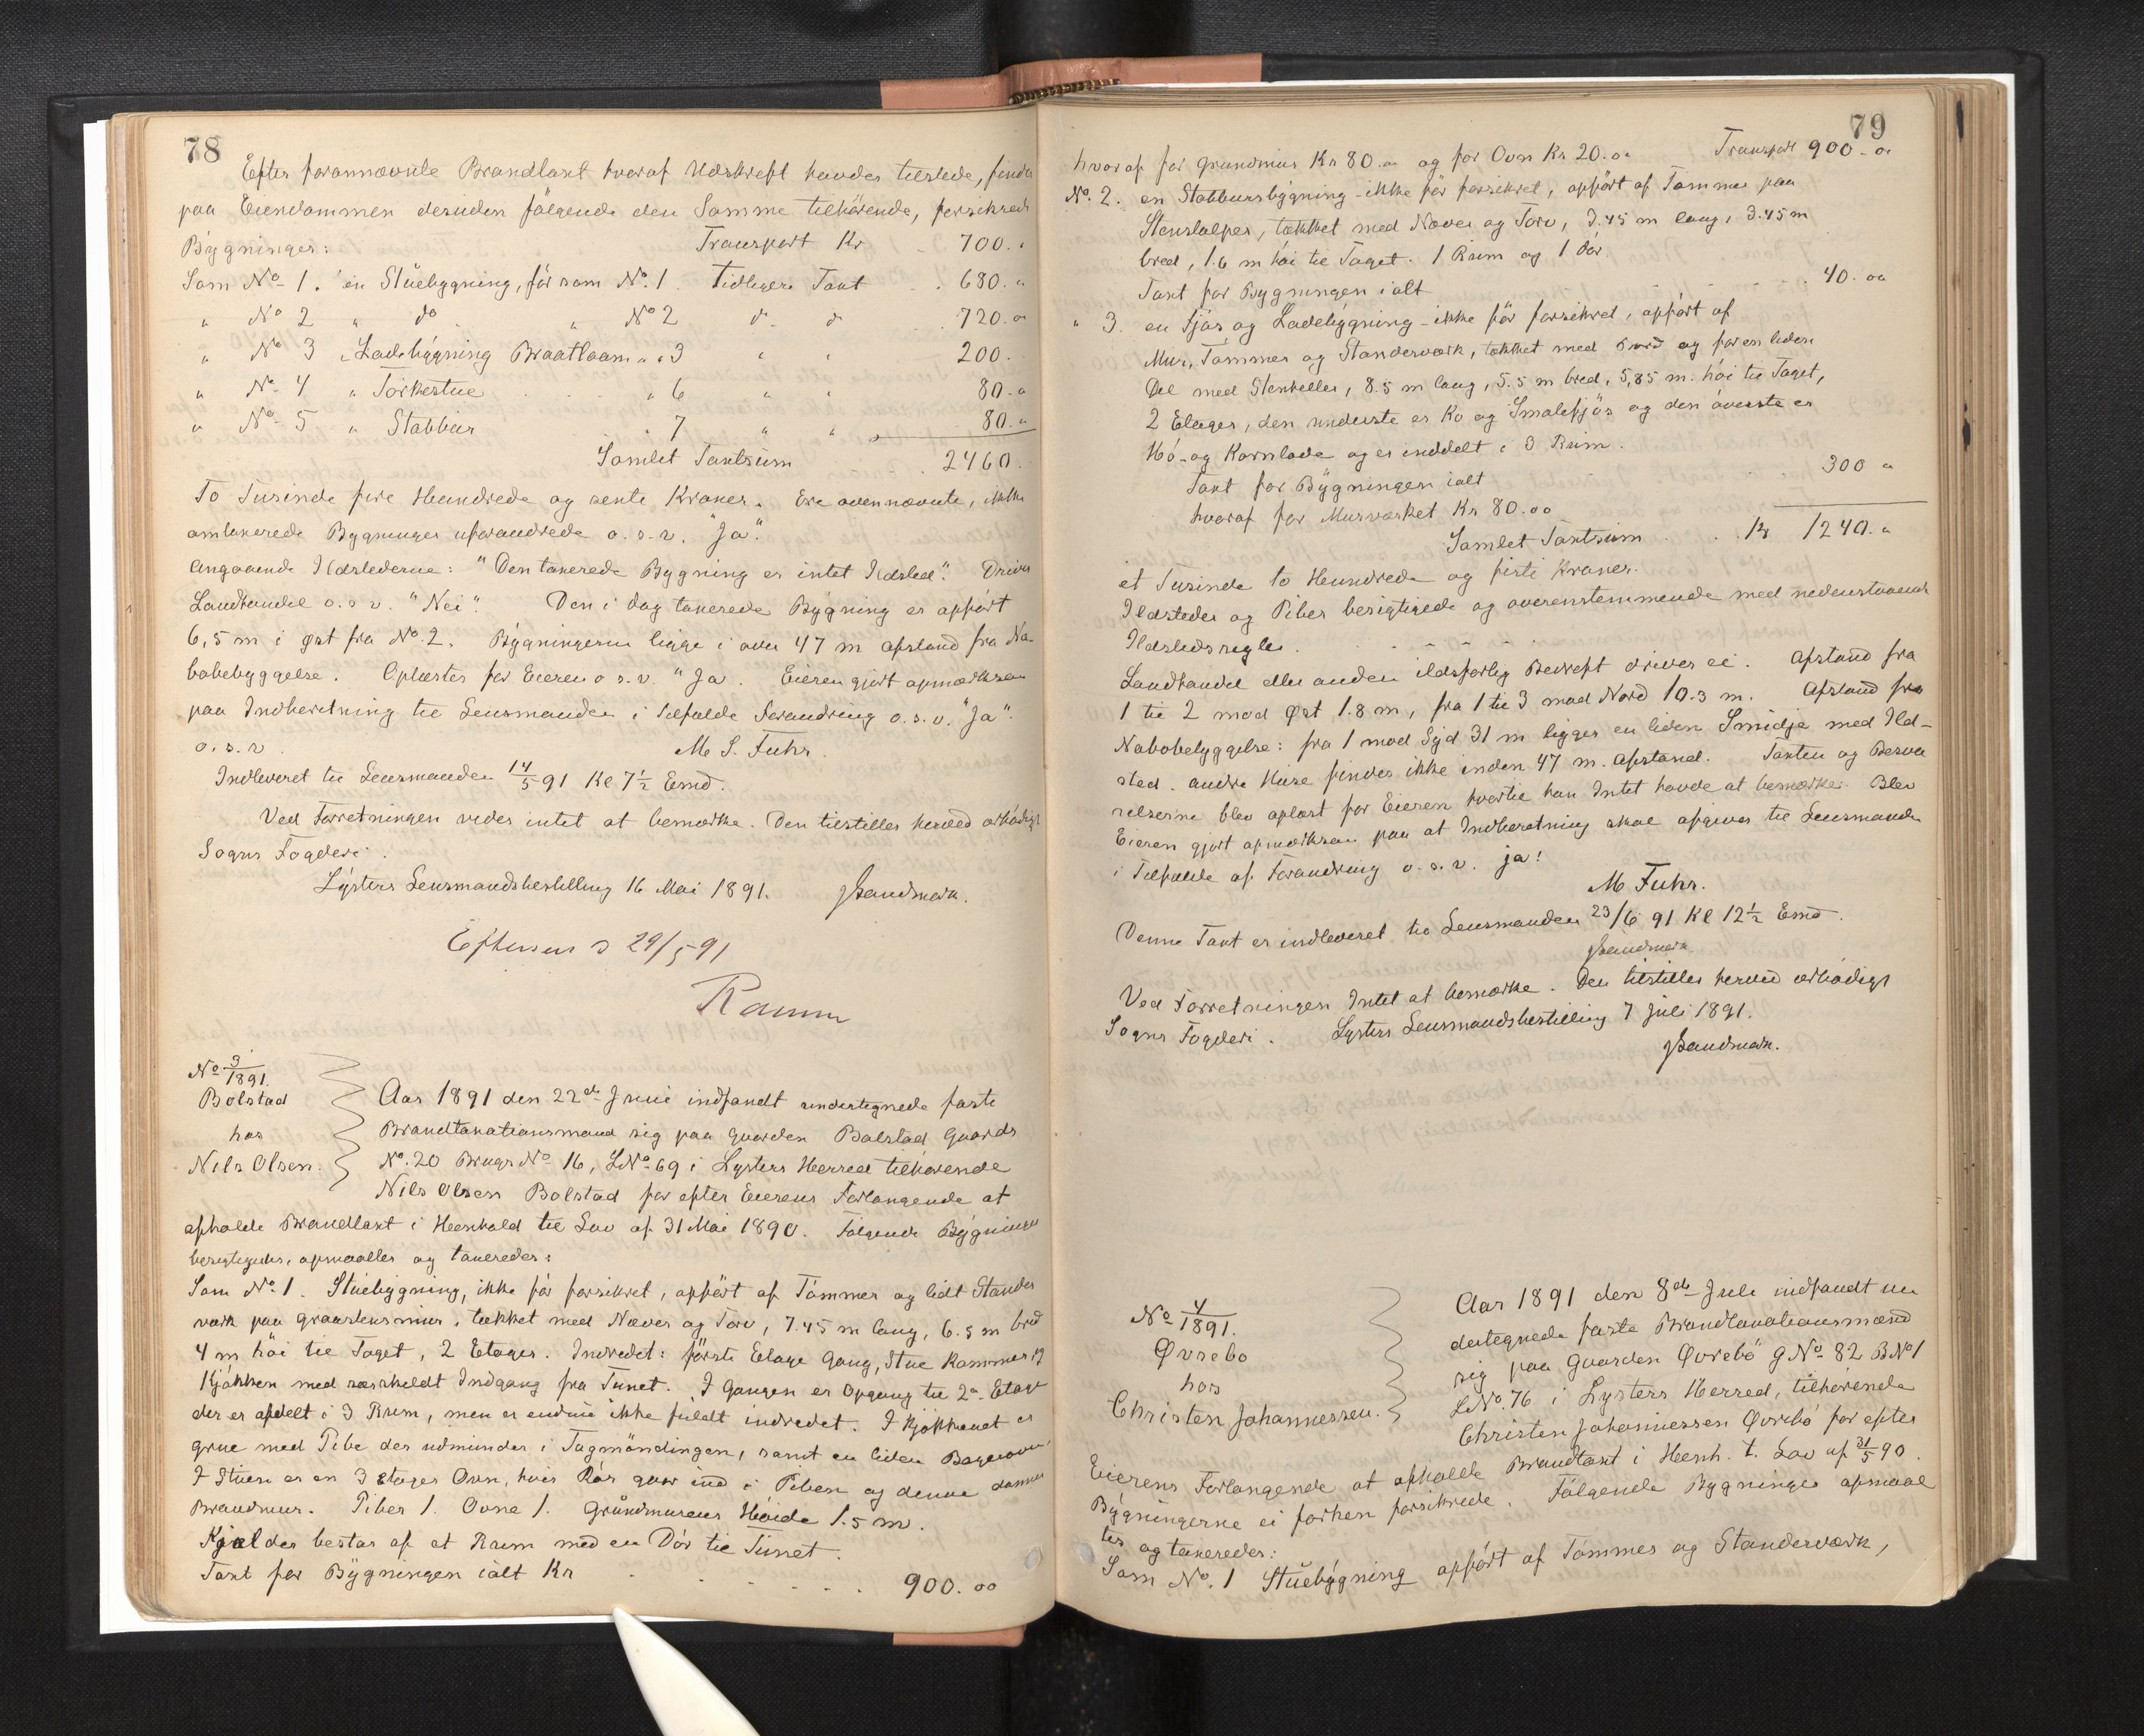 78
Efter forannævnte Brandtaxt hvoraf Udskrift havdes tilstede, findes
paa Eiendommen desuden følgende den Samme tilhörende, forsikrede
Bygninger: Transport Kr 700. "
Som No 1. en Stuebygning, för som No. 1 Tidligere Taxt 680. "
" No 2 " do " No 2 do do 720. "
" No 3 " Ladebygning Braatloam " " 3 " " 200.
" No 4 " Törkestue " 6 " " 80. "
" No 5 " Stabbur " 7 " " 80. "
Samlet Taxtsum 2460.
To Tusinde fire Hundrede og sexti Kroner. Ere ovennævnte, ikke
omtaxerede Bygninger uforandrede o. s. v. "Ja".
Angaaende Ildstederne: "Den taxerede Bygning er intet Ildsted". Drives
Landhandel o. s. v. "Nei". Den i dag taxerede Bygning er opfört
6,5 m i Øst fra No. 2. Bygningerne ligge i over 47 m afstand fra Na-
bobebyggelse. Oplæstes for Eieren o. s. v. "Ja". Eieren gjort opmærksom
paa Indberetning til Lensmanden i Tilfælde Forandring o. s. v. "Ja".
o. s. v. M. S. Fuhr.
Indleveret til Lensmanden 14/5 91 Kl 7½ Emd.
Ved Forretningen vides intet at bemærke. Den tilstilles herved ærbödigst
Sogns Fogderi.
Lysters Lensmandsbestilling 16 Mai 1891. JSandmark.
29/5 91
Ramm
No 3/1891.
Bolstad
hos
Nils Olsen.
Aar 1891 den 22de Juni indfandt undertegnede faste
Brandtaxationsmænd sig paa Gaarden Bolstad Gaards
No. 20 Brugs No 16, LNo 69 i Lysters Herred tilhørende
Nils Olsen Bolstad for efter Eierens Forlangende at
afholde Brandtaxt i Henhold til Lov af 31 Mai 1890. Følgende Bygninger
besigtigedes, opmaaltes og taxeredes:
Som No. 1. Stuebygning, ikke för forsikret, opfört af Tömmer og lidt Stander
værk paa Graastensmur, tækket med Næver og Torv, 7.45 m lang, 6.5 m bred
4 m höi til Taget, 2 Etager. Indredet: förste Etage Gang, Stue Kammer og
Kjökken med særskildt Indgang fra Tunet. I Gangen er Opgang til 2den Etage
der er afdelt i 3 Rum, men er endnu ikke fuldt indredet. I Kjökkenet er
grue med Pibe der udmunder i Tagmöndingen, samt en liden Bagerovn.
I Stuen er en 3 etages Ovn, hvis Rör gaar ind i Piben og denne danner
Brandmur. Piber 1. Ovne 1. Grundmurens Höide 1.5 m.
Kjælder bestar af et Rum med en Dör til Tunet.
Taxt for Bygningen ialt Kr 900. 00
79
hvoraf for Grundmur Kr 80. oo og for Ovn Kr 20. oo Transport 900. oo
No. 2. en Stabbursbygning - ikke för forsikret, opfört af Tømmer paa
Stenstolper, tækket med Næver og Torv, 3.45 m lang, 3.45 m
bred, 1.6 m höi til Taget. 1 Rum og 1 Dör.
Taxt for Bygningen ialt 40. oo
" 3. en Fjös og Ladebygning - ikke för forsikret, opfört af
Mur, Tömmer og Standerværk, tækket med Bord og for en liden
Del med Stenheller, 8.5 m lang, 5.5 m bred, 5,85 m. höi til Taget,
2 Etager, den underste er Ko og Smalefjös og den överste er
Hö- og Kornlade og er inddelt i 3 Rum.
Taxt for Bygningen ialt 300 "
hvoraf for Murværket Kr 80. oo
Samlet Taxtsum Kr 1240. "
et Tusinde to Hundrede og firti Kroner.
Ildsteder og Piber besigtigede og overenstemmende med nedenstaaende
Ildstedsregler.
Landhandel eller anden ildsfarlig Bedrift drives ei. Afstand fra
1 til 2 mod Øst 1.8 m, fra 1 til 3 mod Nord 10.3 m. Afstand fra
Nabobebyggelse: fra 1 mod Syd 31 m ligger en liden Smidje med Ild-
sted. Andre Huse findes ikke inden 47 m. Afstand. Taxten og Besva
relserne blev oplæst for Eieren hvortil han Intet havde at bemærke. Blev
Eieren gjort opmærksom paa at Indberetning skal afgives til Lensmanden
i Tilfælde af Forandring o. s. v. ja!
M Fuhr.
Denne Taxt er indleveret til Lensmanden 23/6 91 Kl 12½ Emd.
JSandmark
Ved Forretningen Intet at bemærke. Den tilstilles herved ærbödigst
Sogns Fogderi. Lysters Lensmandsbestilling 7 Juli 1891.
JSandmark.
No 4/1891.
Øvrebo
hos
Christen Johannessen.
Aar 1891 den 8de Juli indfandt un
dertegnede faste Brandtaxationsmænd
sig paa Gaarden Øvrebö G No 82 B No 1
LNo. 76 i Lysters Herred, tilhørende
Christen Johannessen Øvrebö for efter
Eierens Forlangende at afholde Brandtaxt i Henh. t. Lov af 31/5 90.
Bygningerne ei forhen forsikrede. Fölgende Bygninger opmaal
tes og taxeredes:
Som No. 1 Stuebygning opfört af Tömmer og Standerværk,